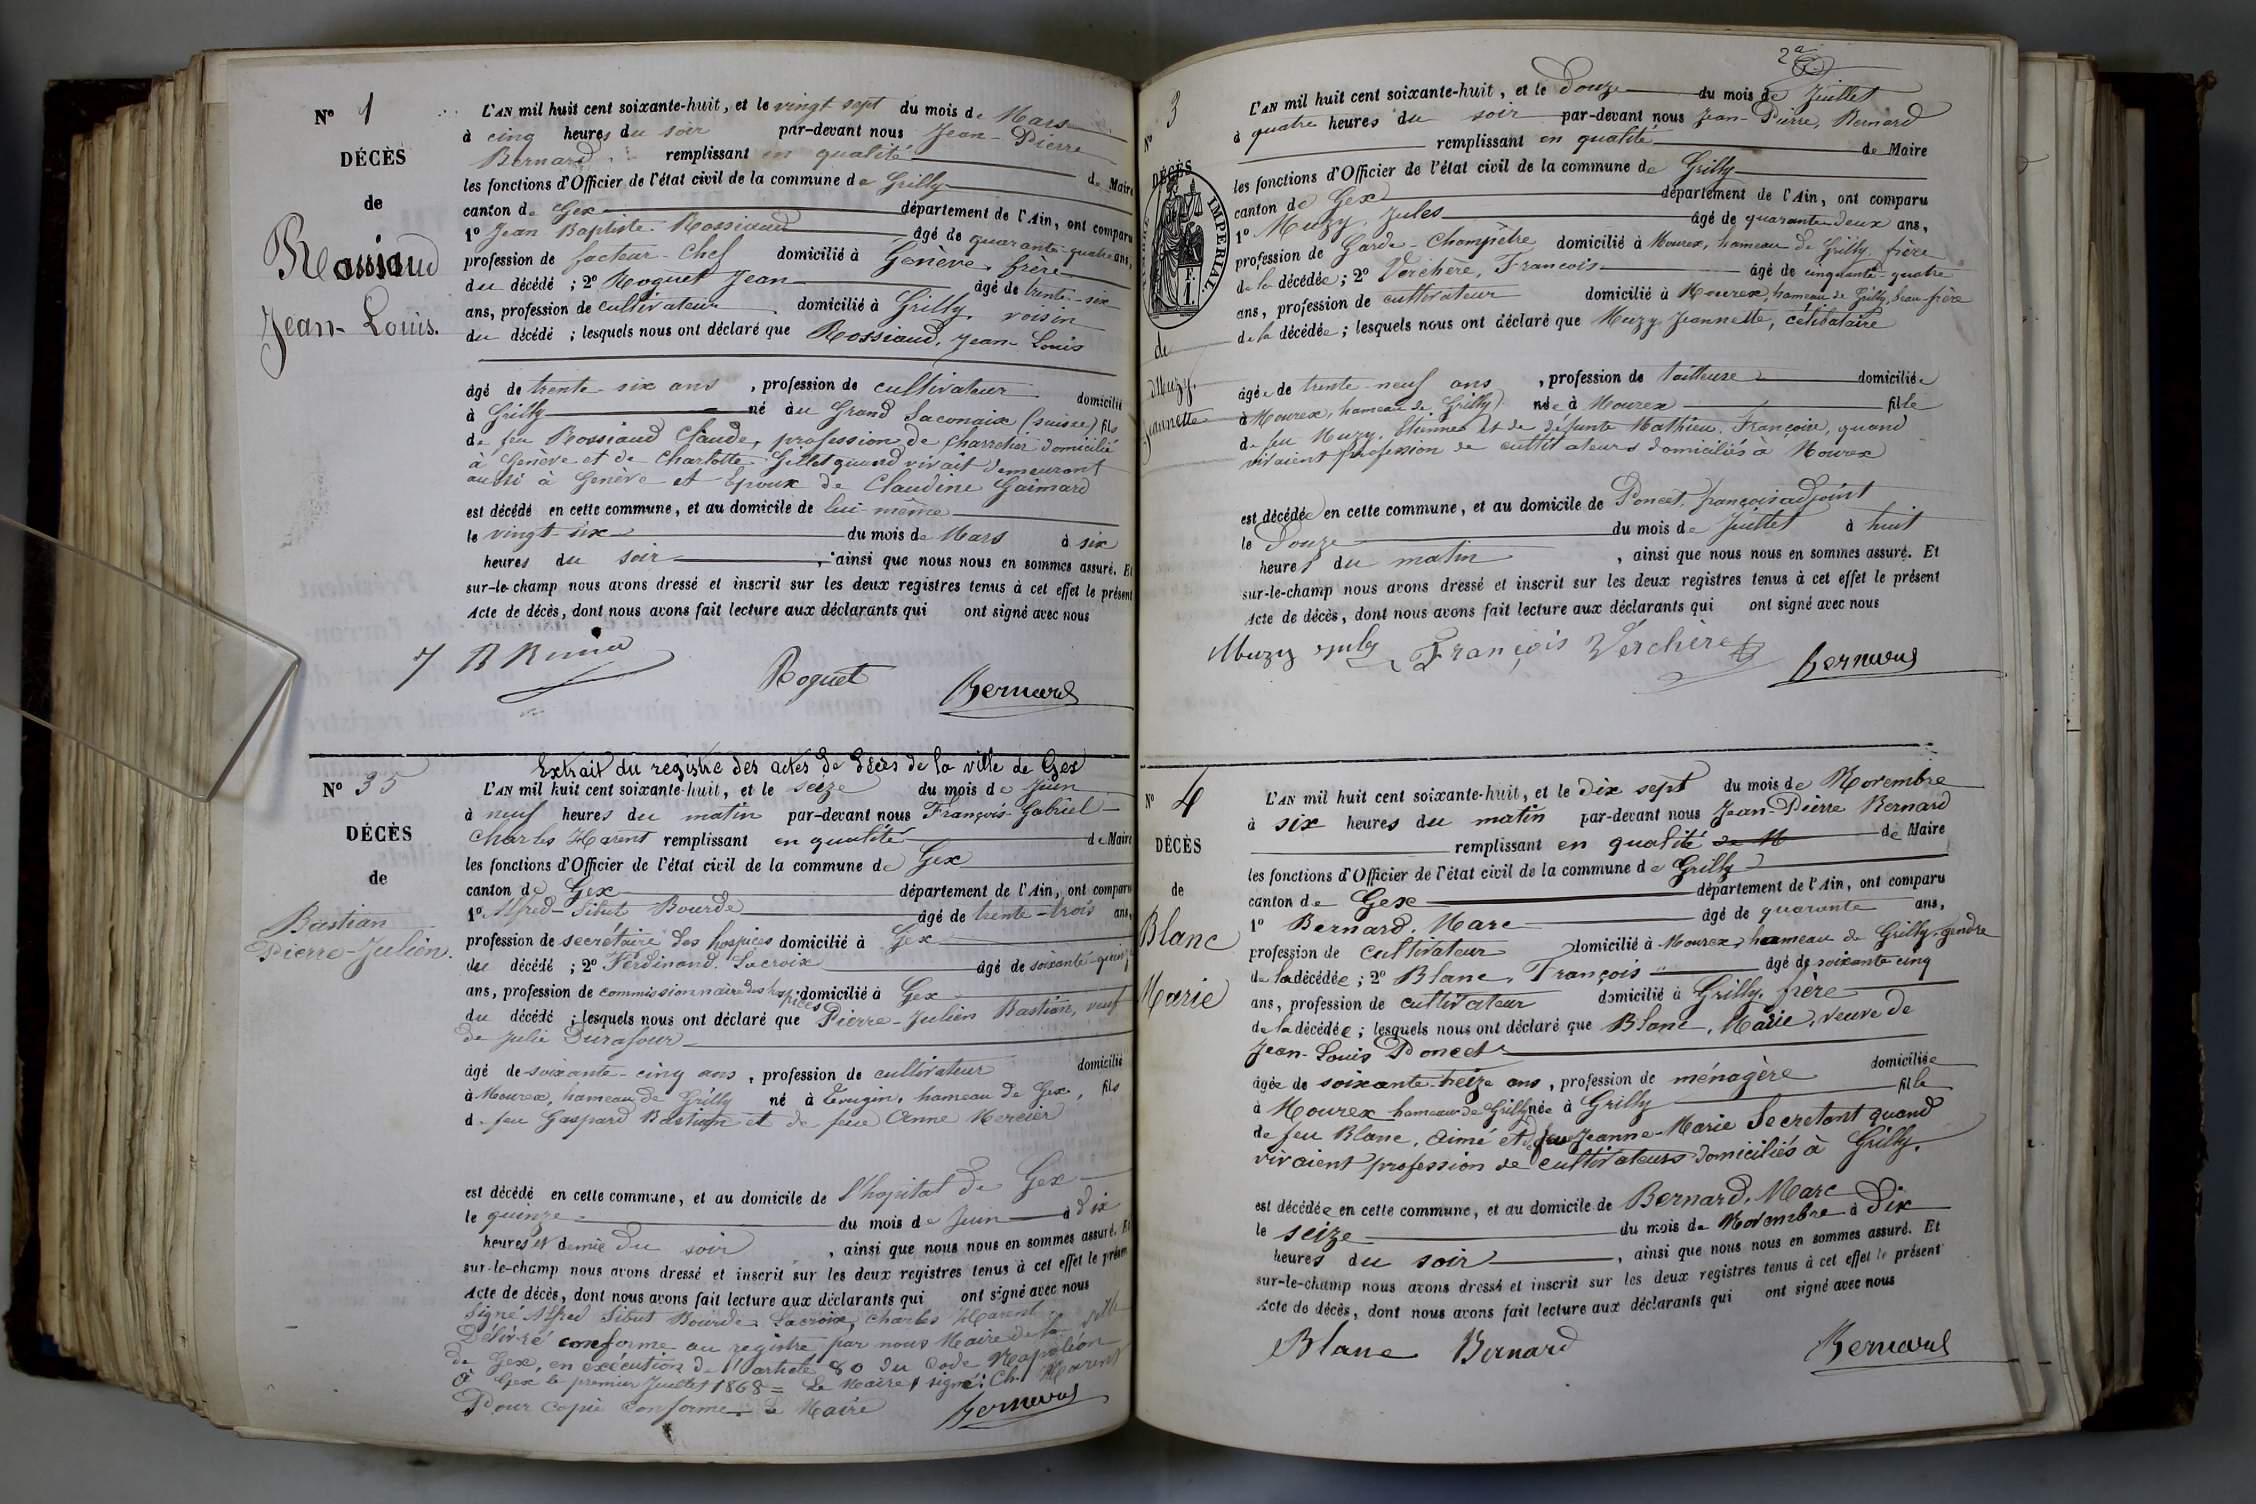 N° 1
DÉCÈS
de
Rossiaud
Jean-Louis.
L'AN mil huit cent soixante-huit, et le vingt sept du mois de Mars
à cinq heures du soir par-devant nous Jean-Pierre
Bernard remplissant en qualité de Maire
les fonctions d'Officier de l'état civil de la commune de Grilly
canton de Gex département de l'Ain, ont comparu
1° Jean Baptiste Rossiaud âgé de quarante-quatre ans,
profession de facteur-chef domicilié à Genève, frère
du décédé ; 2° Roguet Jean âgé de trente-six
ans, profession de cultivateur domicilié à Grilly, voisin
du décédé ; lesquels nous ont déclaré que Rossiaud, Jean-Louis
âgé de trente-six ans, profession de cultivateur domicilié
à Grilly né au Grand Saconaix (Suisse) fils
de feu Rossiaud Claude, profession de charretier domicilié
à Genève et de Charlotte Gillet quand vivait demeurant
aussi à Genève et Epoux de Claudine Gaimard
est décédé en cette commune, et au domicile de lui-même
le vingt-six du mois de Mars à six
heures du soir, ainsi que nous nous en sommes assuré. Et
sur-le-champ nous avons dressé et inscrit sur les deux registres tenus à cet effet le présent
Acte de décès, dont nous avons fait lecture aux déclarants qui ont signé avec nous
Roguet Bernard
Extrait du registre des actes de décès de la ville de Gex
N° 35
DÉCÈS
de
Bastian
Pierre-Julien.
L'AN mil huit cent soixante-huit, et le seize du mois de Juin
à neuf heures du matin par-devant nous François-Gabriel-
Charles Harent remplissant en qualité de Maire
les fonctions d'Officier de l'état civil de la commune de Gex
canton de Gex département de l'Ain, ont comparu
1° Alfred-Sibut Bourde âgé de trente-trois ans,
profession de secrétaire des hospices domicilié à Gex
du décédé ; 2° Ferdinand Lacroix âgé de soixante-quinze
ans, profession de commissionnaire des hospices domicilié à Gex
du décédé ; lesquels nous ont déclaré que Pierre-Julien Bastian, veuf
de Julie Durafour
âgé de soixante-cinq ans, profession de cultivateur domicilié
à Mourex, hameau de Grilly né à Tougin, hameau de Gex, fils
de feu Gaspard Bastian et de feue Anne Mercier
est décédé en cette commune, et au domicile de l'hopital de Gex
le quinze du mois de Juin à dix
heures et demie du soir, ainsi que nous nous en sommes assuré. Et
sur-le-champ nous avons dressé et inscrit sur les deux registres tenus à cet effet le présent
Acte de décès, dont nous avons fait lecture aux déclarants qui ont signé avec nous
Signé Alfred Sibut Bourde, Lacroix, Charles Harent
Délivré conforme au registre par nous Maire de la ville
de Gex, en exécution de l'article 80 du Code Napoléon
à Gex le premier Juillet 1868 = Le Maire, signé: Ch. Harent
Pour Copie conforme. Le Maire Bernard
2e
N° 3
DÉCÈS
TIMBRE IMPÉRIAL
de
Muzy.
Jeannette
L'AN mil huit cent soixante-huit, et le Douze du mois de Juillet
à quatre heures du soir par-devant nous Jean-Pierre, Bernard
remplissant en qualité de Maire
les fonctions d'Officier de l'état civil de la commune de Grilly
canton de Gex département de l'Ain, ont comparu
1° Muzy, Jules âgé de quarante-deux ans,
profession de Garde-Champêtre domicilié à Mourex, hameau de Grilly frère
de la décédée ; 2° Verchère, François âgé de cinquante-quatre
ans, profession de cultivateur domicilié à Mourex, hameau de Grilly, beau-frère
de la décédée ; lesquels nous ont déclaré que Muzy Jeannette, célibataire
âgée de trente-neuf ans, profession de tailleuse domiciliée
à Mourex, hameau de Grilly) née à Mourex fille
de feu Muzy, Etienne et de défunte Mathieu Françoise, quand
vivaient profession de cultivateurs domiciliés à Mourex
est décédée en cette commune, et au domicile de Poncet, françois adjoint
le Douze du mois de Juillet à huit
heures du matin, ainsi que nous nous en sommes assuré. Et
sur-le-champ nous avons dressé et inscrit sur les deux registres tenus à cet effet le présent
Acte de décès, dont nous avons fait lecture aux déclarants qui ont signé avec nous
Muzy July François Verchère Bernard
N° 4
DÉCÈS
de
Blanc
Marie
L'AN mil huit cent soixante-huit, et le dix sept du mois de Novembre
à six heures du matin par-devant nous Jean-Pierre Bernard
remplissant en qualité de M de Maire
les fonctions d'Officier de l'état civil de la commune de Grilly
canton de Gex département de l'Ain, ont comparu
1° Bernard, Marc âgé de quarante ans,
profession de cultivateur domicilié à Mourex, hameau de Grilly, gendre
de la décédée ; 2° Blanc, François âgé de soixante cinq
ans, profession de cultivateur domicilié à Grilly, frère
de la décédée ; lesquels nous ont déclaré que Blanc, Marie, veuve de
Jean-Louis Poncet
âgée de soixante-treize ans, profession de ménagère domiciliée
à Mourex hameau de Grilly née à Grilly fille
de feu Blanc, Aimé et de feue Jeanne-Marie Secretant quand
vivaient profession de cultivateurs domiciliés à Grilly.
est décédée en cette commune, et au domicile de Bernard, Marc
le seize du mois de Novembre à dix
heures du soir, ainsi que nous nous en sommes assuré. Et
sur-le-champ nous avons dressé et inscrit sur les deux registres tenus à cet effet le présent
Acte de décès, dont nous avons fait lecture aux déclarants qui ont signé avec nous
Blanc Bernard Bernard